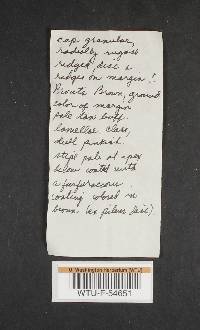 cap granular,
radially rugose
ridged, disc &
ridges on margin!
Brown, ground
color of margin
pale tan buff.
lamellae close,
dull pinkish.
stipe pale at apex
below coated with
a furfuraceous
coating colored in
brown. (as pileus disc).
U. Washington Herbarium (WTU)
WTU-F-54651